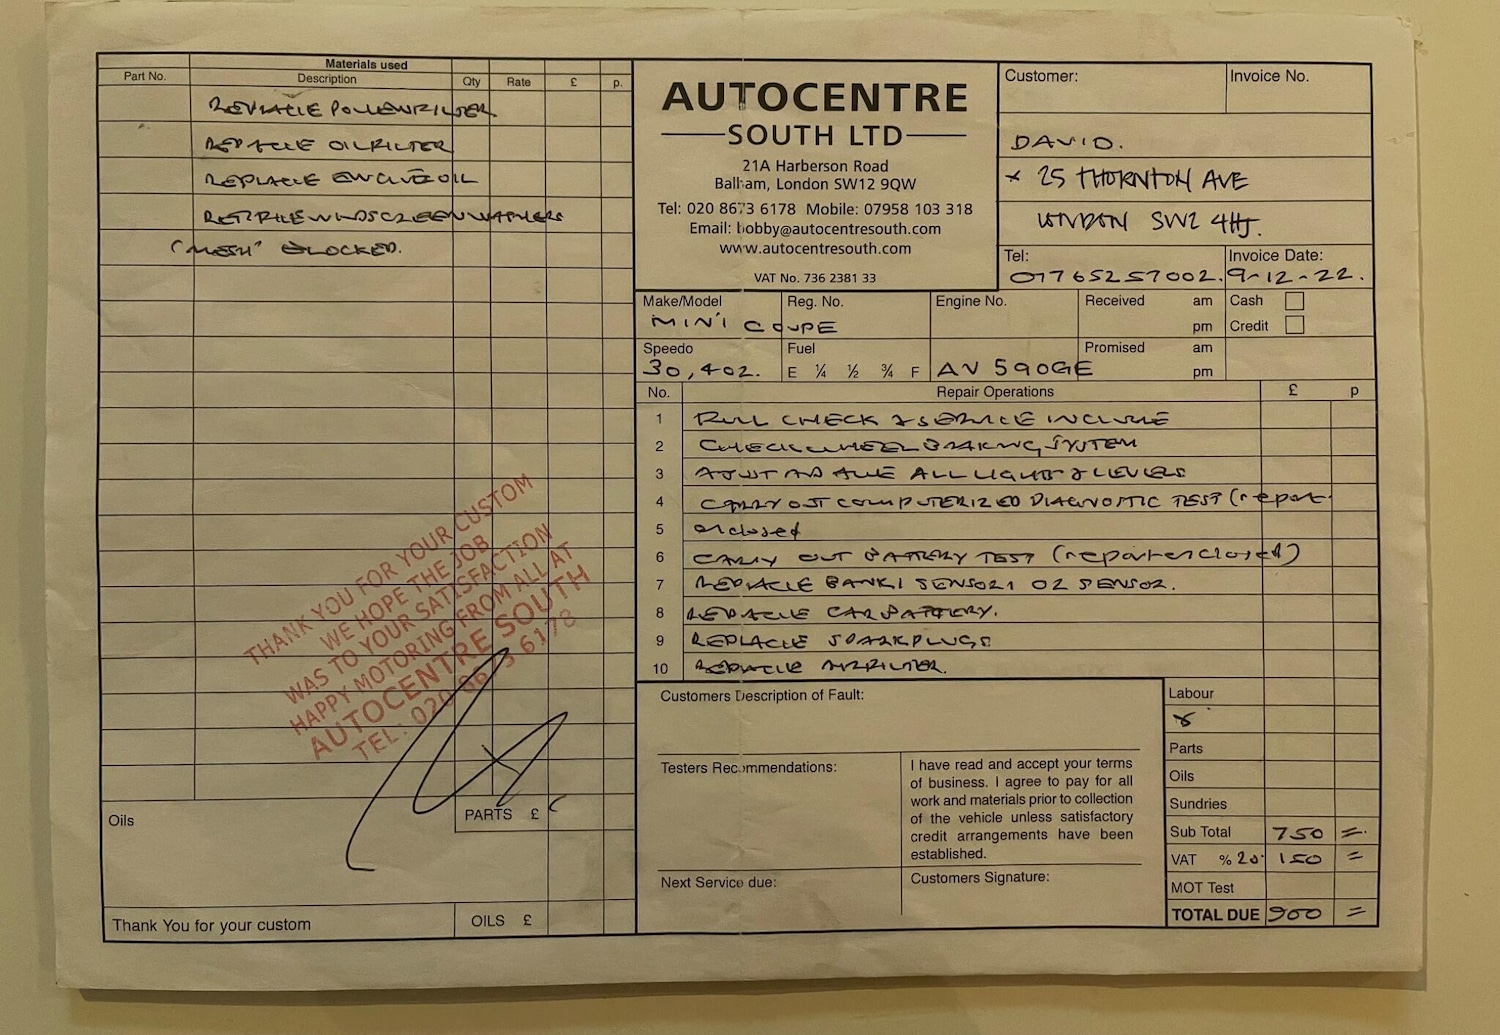 Materials used
Part No. Description Qty Rate £ p.
REPLACE POLLENFILTER.
REPLACE OILFILTER
REPLACE ENGINE OIL
WINDSCREENWASHERS
("MESH" BLOCKED.
THANK YOU FOR YOUR CUSTOM
WE HOPE THE JOB
WAS TO YOUR SATISFACTION
HAPPY MOTORING FROM ALL AT
AUTOCENTRE SOUTH
TEL: 020 8673 6178
PARTS £
Oils
Thank You for your custom
OILS £
AUTOCENTRE
SOUTH LTD
21A Harberson Road
Balham, London SW12 9QW
Tel: 020 8673 6178 Mobile: 07958 103 318
Email: bobby@autocentresouth.com
www.autocentresouth.com
VAT No. 736 2381 33
Customer: Invoice No.
DAVID.
25 THORNTON AVE
LONDON SW2 4HJ.
Tel: Invoice Date:
07765257002. 9-12-22.
Make/Model Reg. No. Engine No. Received am Cash
MINI COUPE pm Credit
Speedo Fuel Promised am
30,402. E ¼ ½ ¾ F AV 59OGE pm
No. Repair Operations £ p
1 FULL CHECK & SERVICE INCLUDE
2 CHECK WHEEL BRAKING SYSTEM
3 ALL LIGHTS & LEVELS
4 CARRY OUT COMPUTERIZED DIAGNOSTIC TEST (report
5 enclosed
6 CARRY OUT BATTERY TEST (report enclosed)
7 REPLACE BANK1 SENSOR1 O2 SENSOR.
8 REPLACE CAR BATTERY.
9 REPLACE SPARKPLUGS
10 REPLACE AIRFILTER.
Customers Description of Fault:
Testers Recommendations:
I have read and accept your terms
of business. I agree to pay for all
work and materials prior to collection
of the vehicle unless satisfactory
credit arrangements have been
established.
Next Service due:
Customers Signature:
Labour
&
Parts
Oils
Sundries
Sub Total 750 =
VAT % 20 150 =
MOT Test
TOTAL DUE 900 =